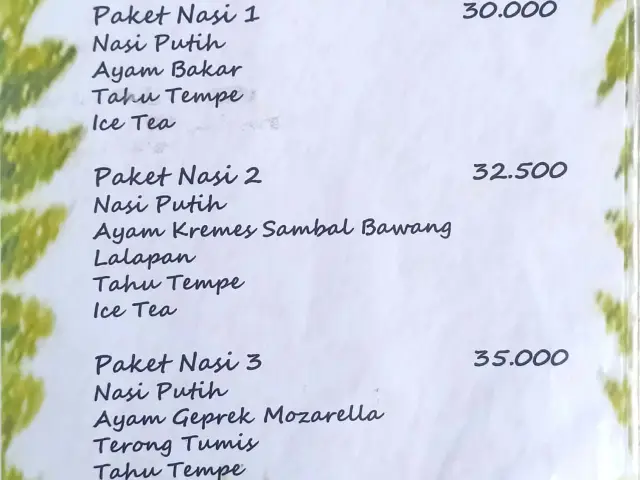 Paket Nasi 1 30.000
Nasi Putih
Ayam Bakar
Tahu Tempe
Ice Tea
Paket Nasi 2 32.500
Nasi Putih
Ayam Kremes Sambal Bawang
Lalapan
Tahu Tempe
Ice Tea
Paket Nasi 3 35.000
Nasi Putih
Ayam Geprek Mozarella
Terong Tumis
Tahu Tempe